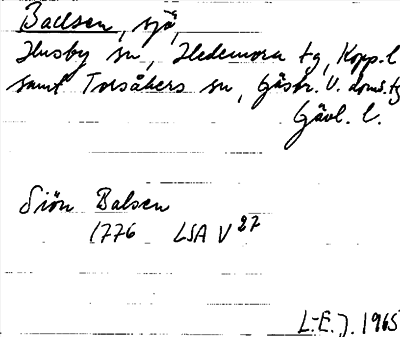 Ballsen, sjö,
Husby sn, Hedemora tg, Kopp. l
samt Torsåkers sn, Gästr. V. doms. tg
Gävl. l.
Siön Balsen
1776 LSA V 27
L-E. J. 1965